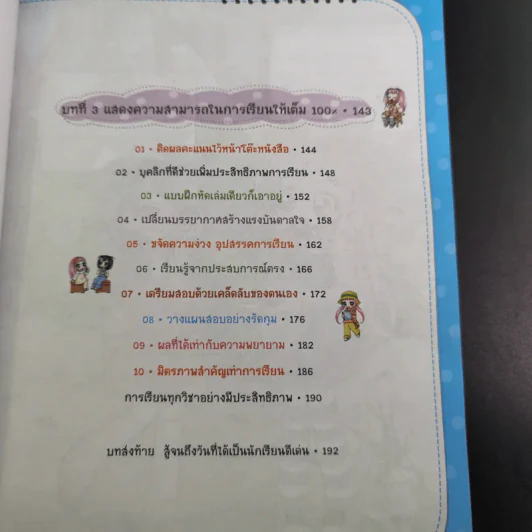 บทที่ 3 แสดงความสามารถในการเรียนให้เต็ม 100% • 143
01 • ติดผลคะแนนไว้หน้าโต๊ะหนังสือ • 144
02 • บุคลิกที่ดีช่วยเพิ่มประสิทธิภาพการเรียน • 148
03 • แบบฝึกหัดเล่มเดียวก็เอาอยู่ • 152
04 • เปลี่ยนบรรยากาศสร้างแรงบันดาลใจ • 158
05 • ขจัดความง่วง อุปสรรคการเรียน • 162
06 • เรียนรู้จากประสบการณ์ตรง • 166
07 • เตรียมสอบด้วยเคล็ดลับของตนเอง • 172
08 • วางแผนสอบอย่างรัดกุม • 176
09 • ผลที่ได้เท่ากับความพยายาม • 182
10 • มิตรภาพสำคัญเท่าการเรียน • 186
การเรียนทุกวิชาอย่างมีประสิทธิภาพ • 190
บทส่งท้าย สู้จนถึงวันที่ได้เป็นนักเรียนดีเด่น • 192